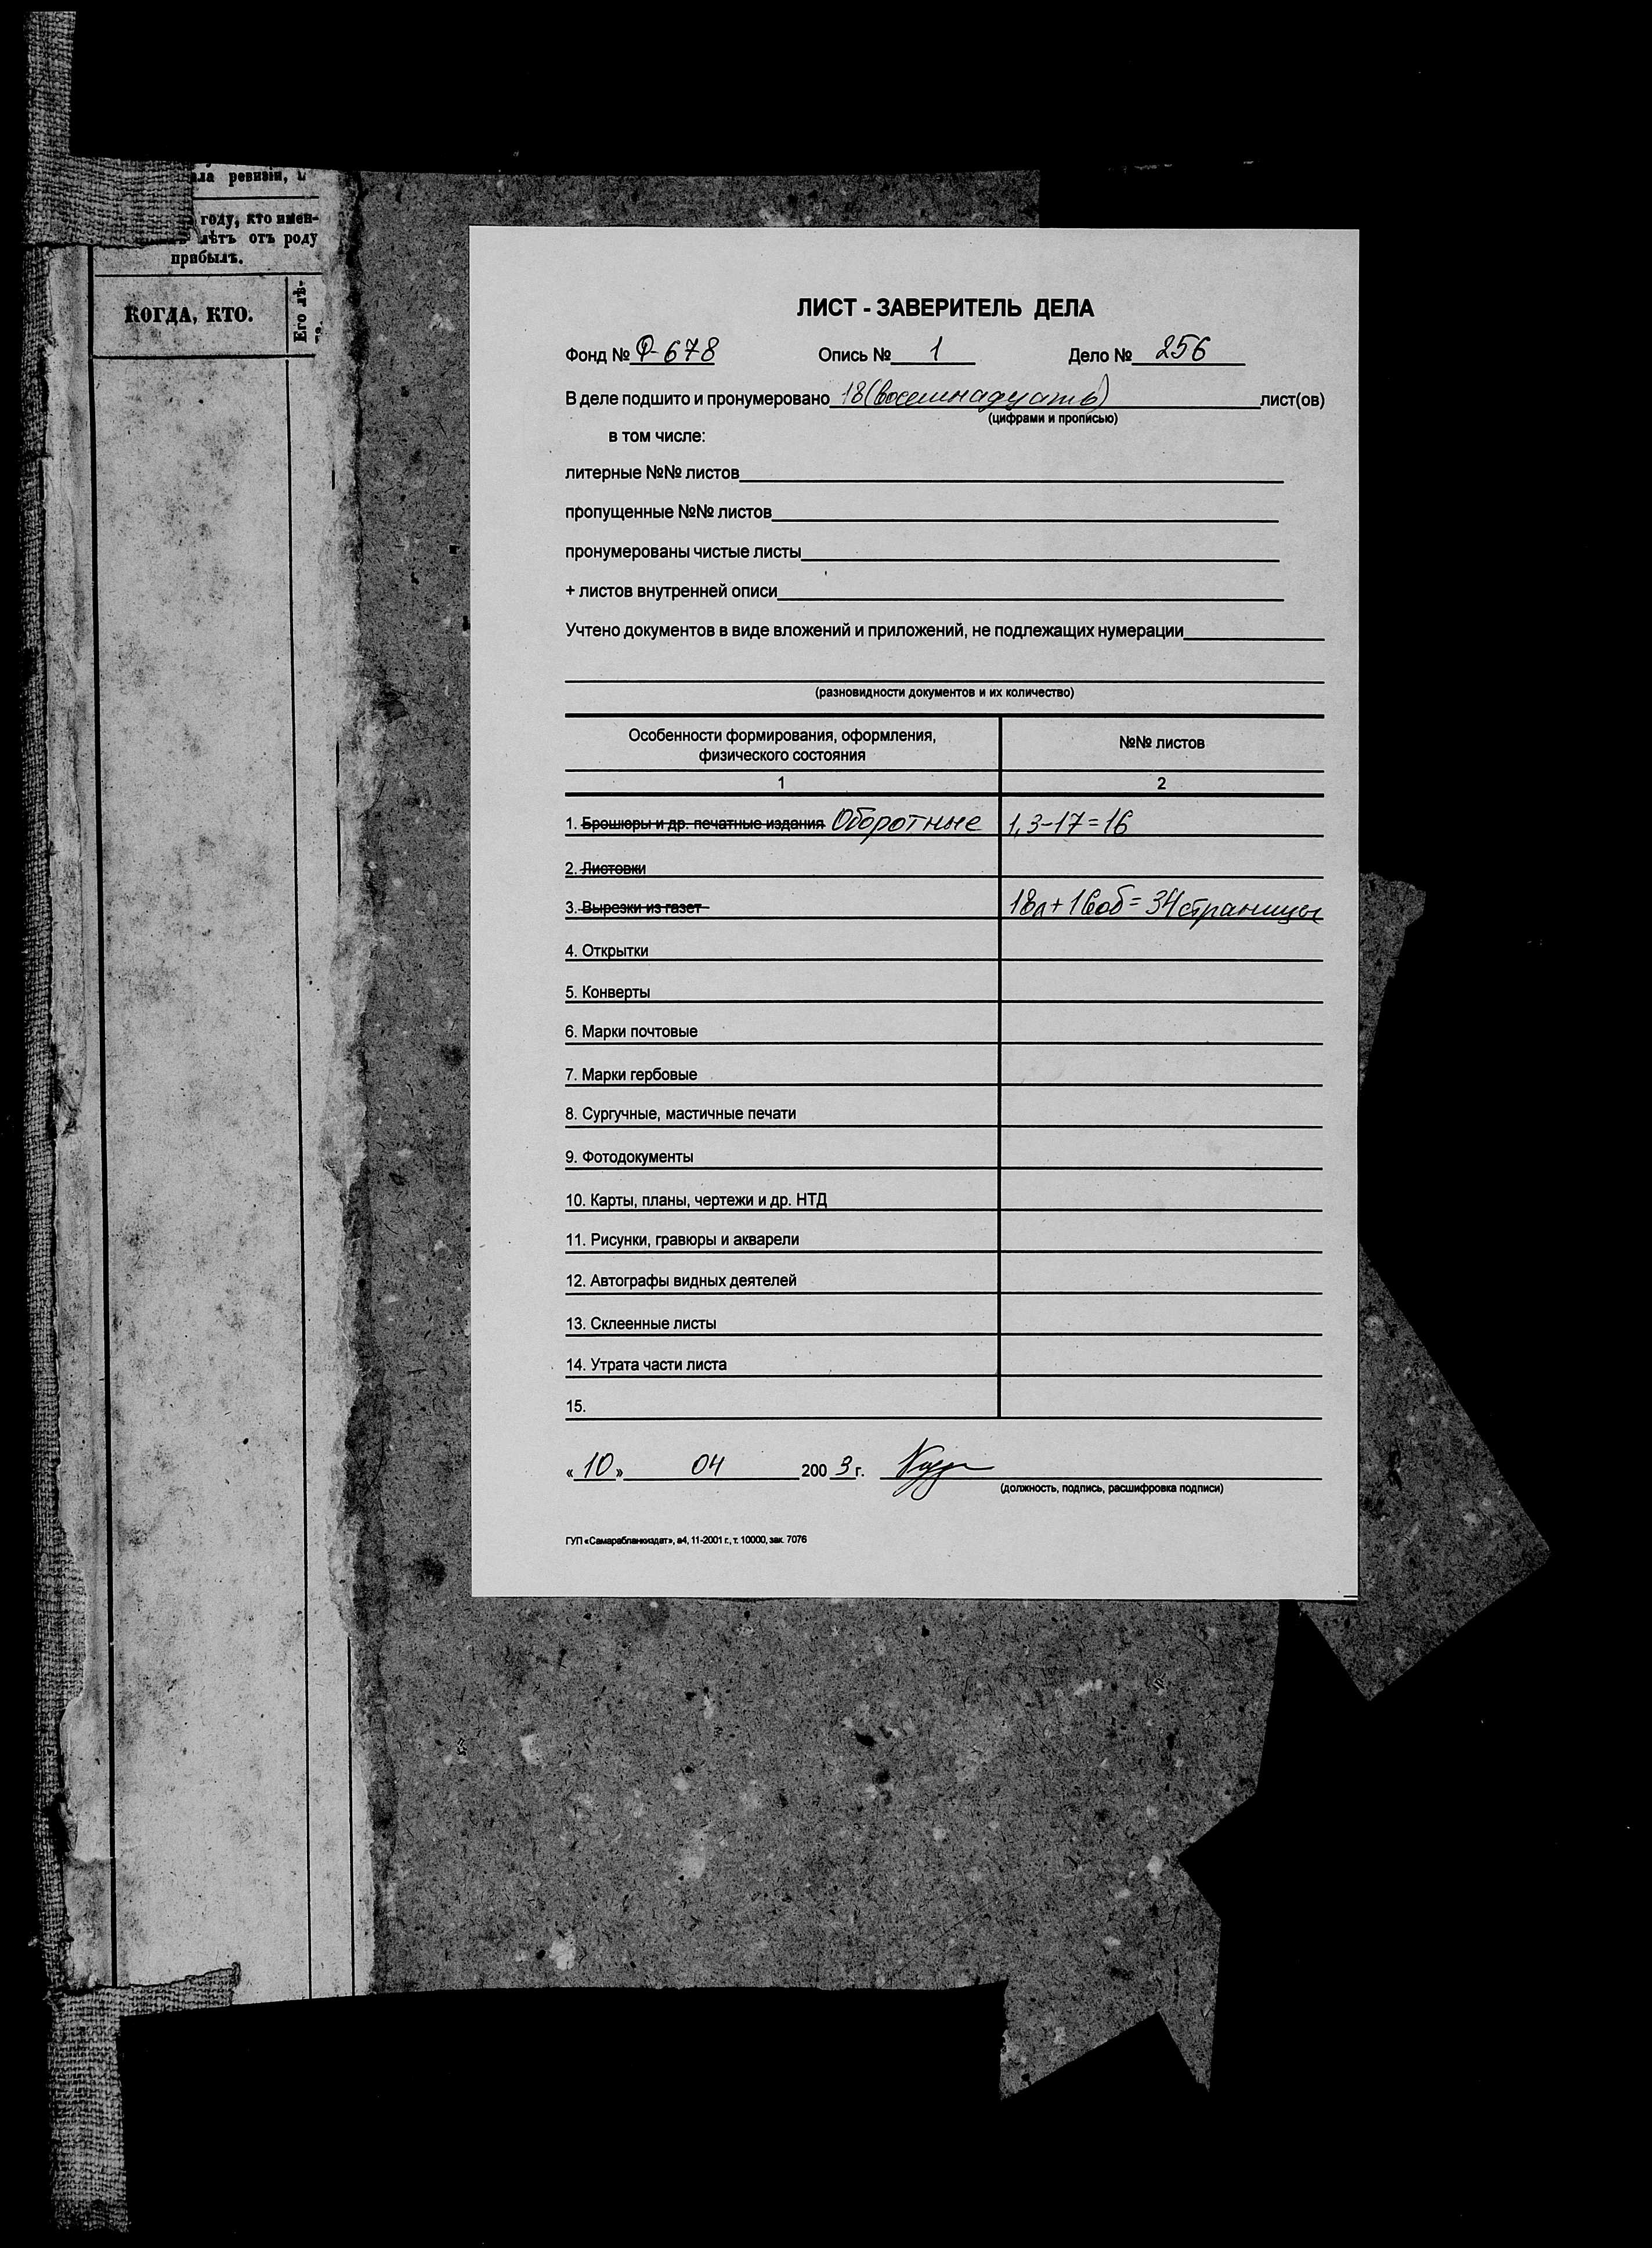 ла ревизіи,
году, кто имен-
лѣтъ отъ роду
прибылъ.
КОГДА, КТО.
Его лѣ-
ЛИСТ - ЗАВЕРИТЕЛЬ ДЕЛА
Фонд № Ф-678 Опись № 1 Дело № 256
В деле подшито и пронумеровано 18 (восемнадцать) лист(ов)
(цифрами и прописью)
в том числе:
литерные №№ листов
пропущенные №№ листов
пронумерованы чистые листы
+ листов внутренней описи
Учтено документов в виде вложений и приложений, не подлежащих нумерации
(разновидности документов и их количество)
Особенности формирования, оформления,
физического состояния
№№ листов
1 2
1. Брошюры и др. печатные издания Оборотные 1, 3-17=16
2. Листовки
3. Вырезки из газет 18л+16об=34 страницы
4. Открытки
5. Конверты
6. Марки почтовые
7. Марки гербовые
8. Сургучные, мастичные печати
9. Фотодокументы
10. Карты, планы, чертежи и др. НТД
11. Рисунки, гравюры и акварели
12. Автографы видных деятелей
13. Склеенные листы
14. Утрата части листа
15.
«10» 04 2003 г.
(должность, подпись, расшифровка подписи)
ГУП «Самарабланкиздат», а4, 11-2001 г., т. 10000, зак. 7076